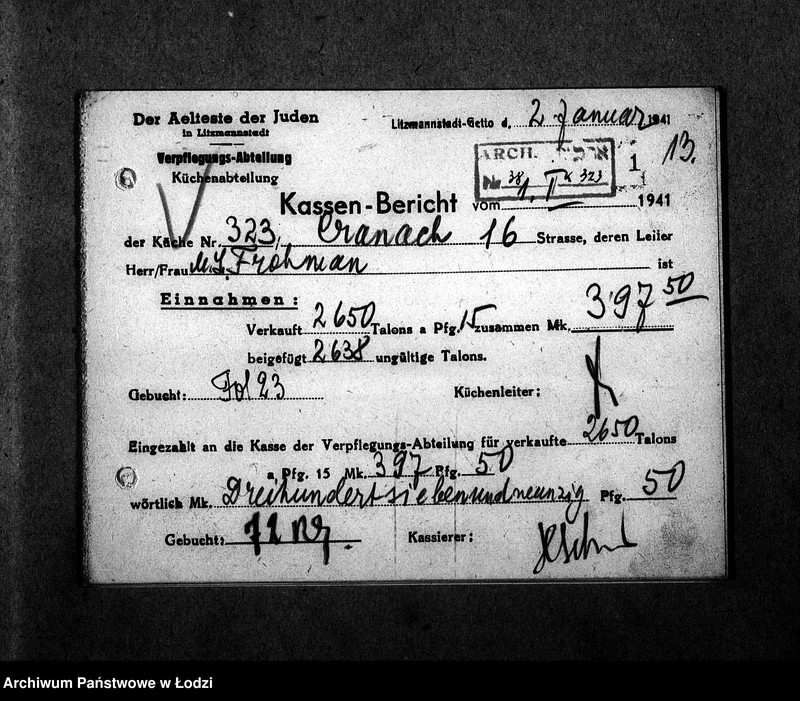 Der Aelteste der Juden
in Litzmannstadt
Verpflegungs-Abteilung
Küchenabteilung
Litzmannstadt-Getto d, 2 Januar 1941
13.
ARCH.
Nr 38 K 323
1
Kassen-Bericht vom 1. I 1941
der Küche Nr. 323, Cranach 16 Strasse, deren Leiler
Herr/Frau M. Frohman ist
Einnahmen:
Verkauft 2650 Talons a Pfg. 15 zusammen Mk. 397 50
beigefügt 2638 ungültige Talons.
Gebucht: Fol 23 Küchenleiter:
Eingezahlt an die Kasse der Verpflegungs-Abteilung für verkaufte 2650 Talons
a Pfg. 15 Mk. 397 Pfg. 50
wörtlich Mk. Dreihundertsiebenundneunzig Pfg. 50
Gebucht: Kassierer:
Archiwum Państwowe w Łodzi